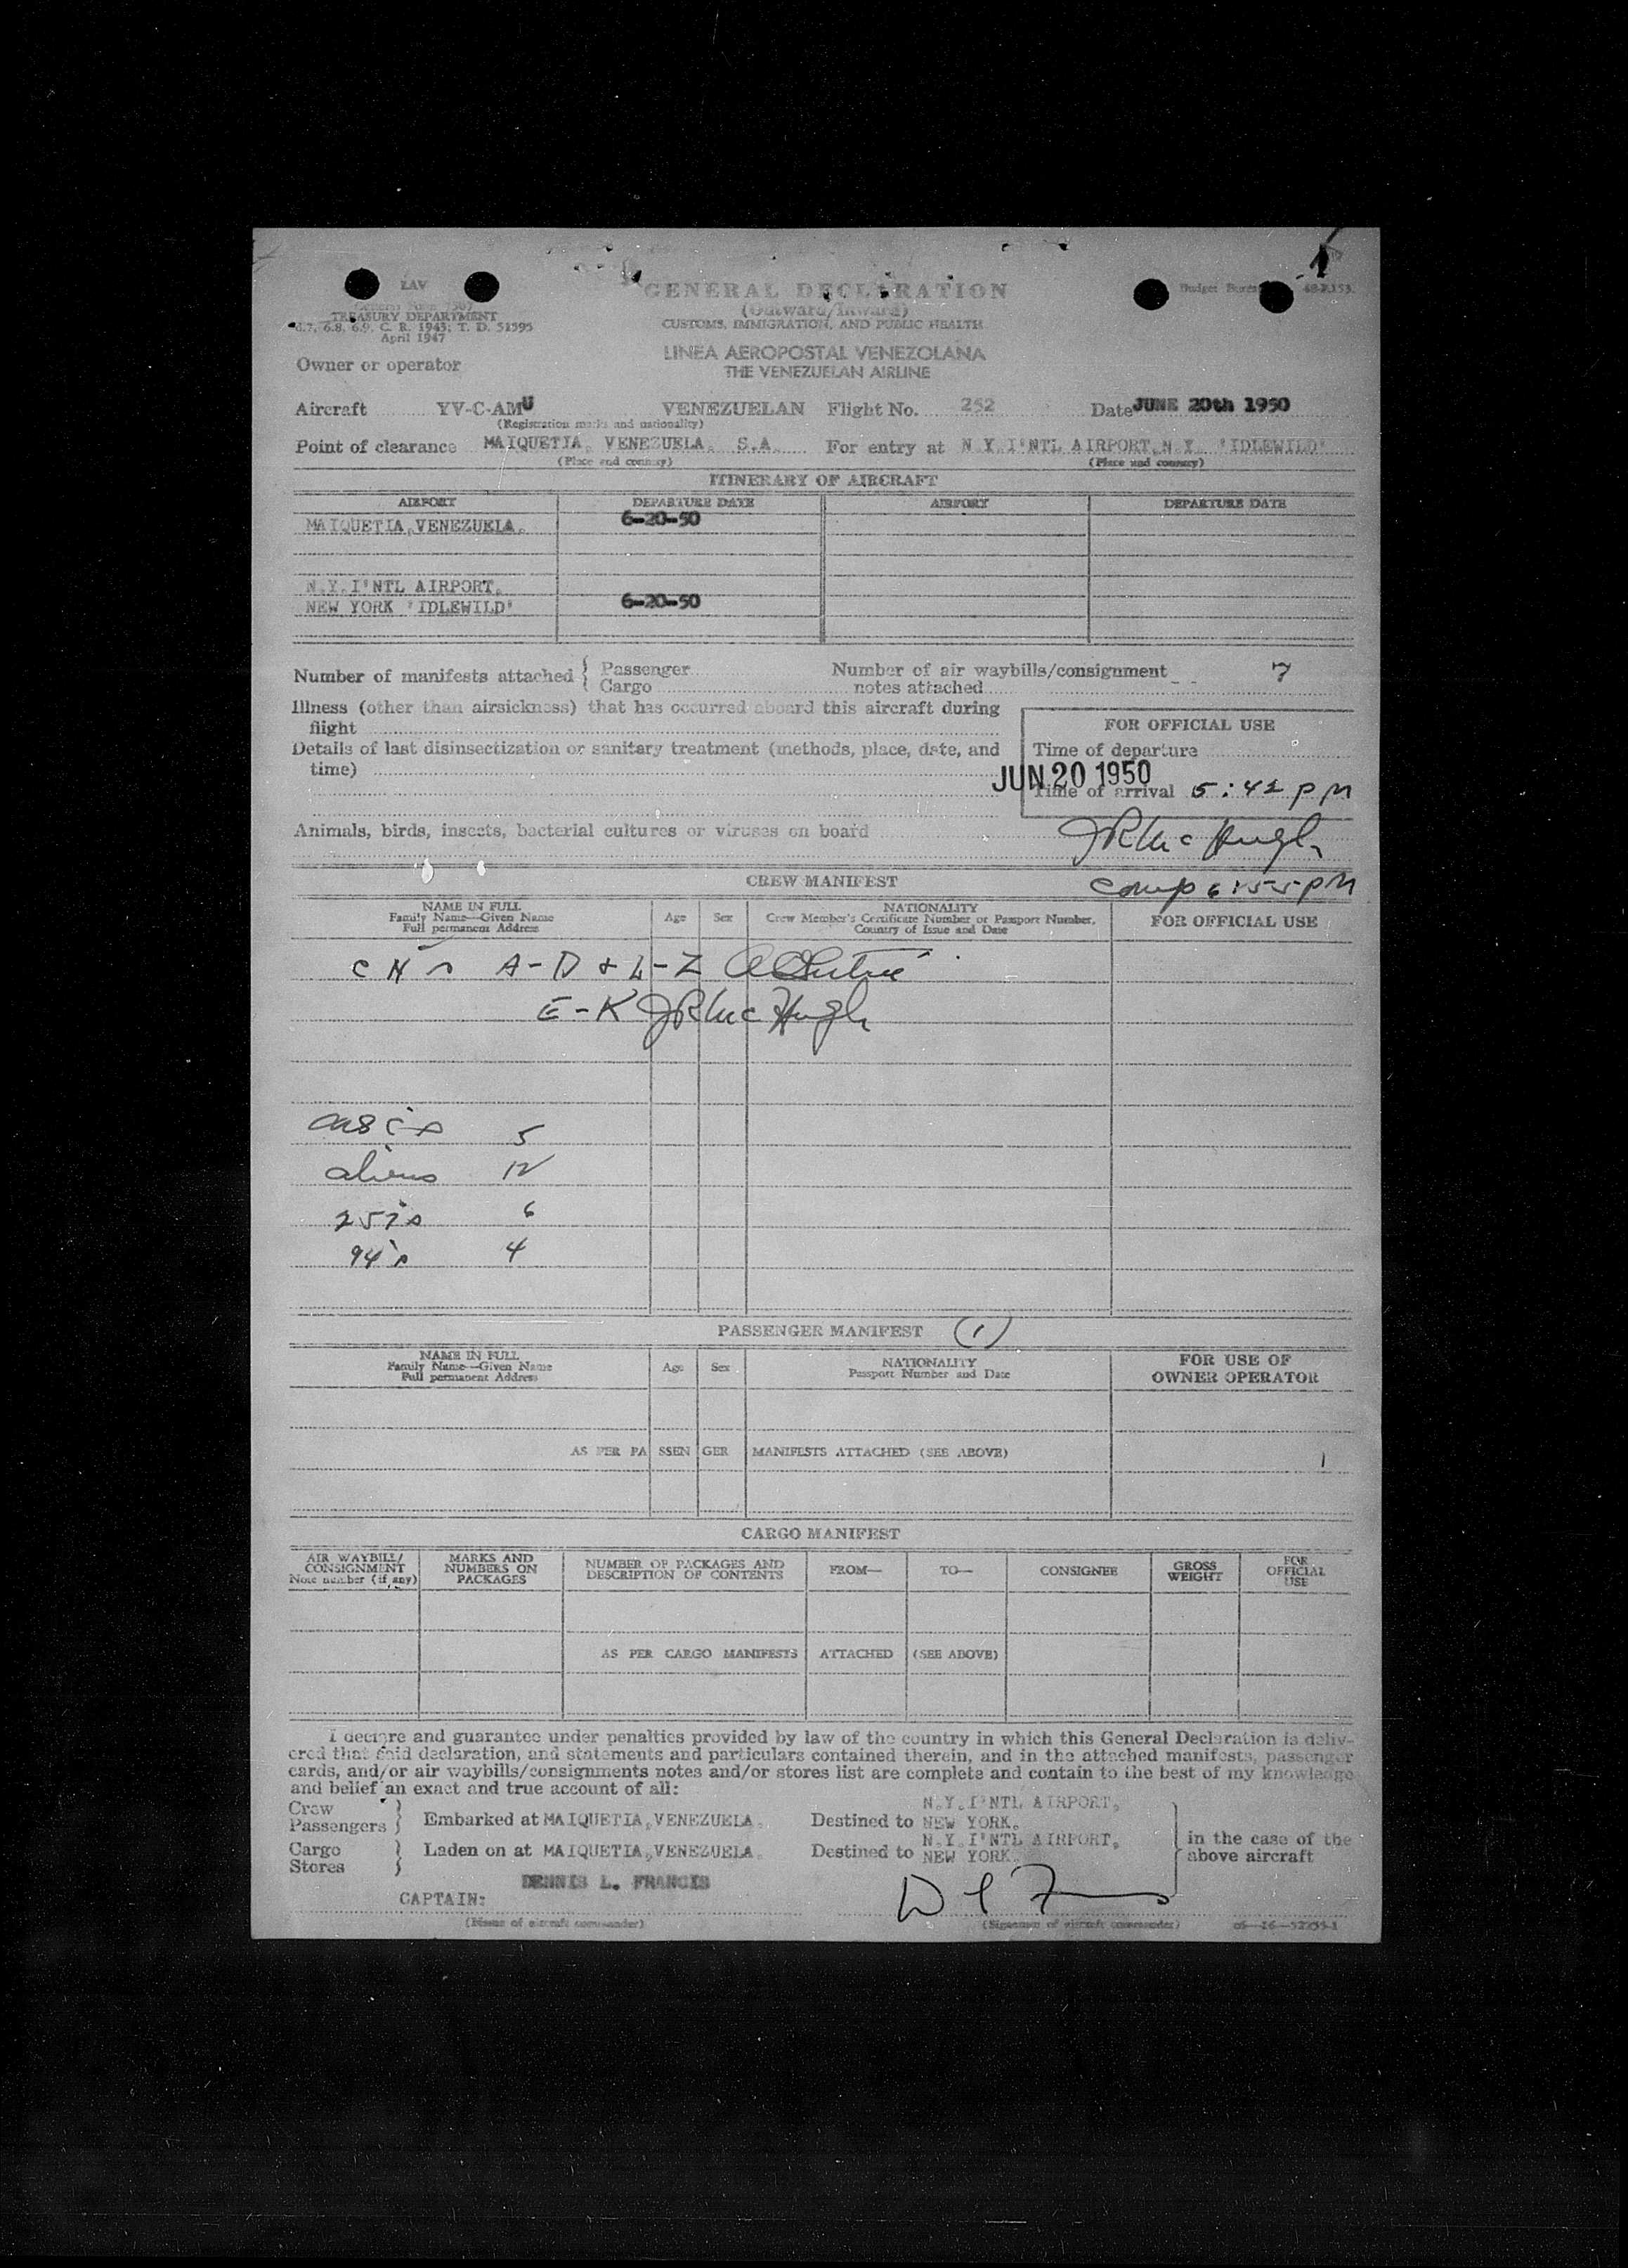 LAV
TREASURY DEPARTMENT
4.7, 6.8, 6.9, C. R. 1943; T. D. 51595
April 1947
GENERAL DECLARATION
(Outward/Inward)
CUSTOMS, IMMIGRATION, AND PUBLIC HEALTH
Budget Bureau
LINEA AEROPOSTAL VENEZOLANA
THE VENEZUELAN AIRLINE
Owner or operator
Aircraft YV-C-AMU VENEZUELAN Flight No. 252 Date JUNE 20th 1950
(Registration marks and nationality)
Point of clearance MAIQUETIA, VENEZUELA, S.A. For entry at N.Y.I'NTL AIRPORT,N.Y. 'IDLEWILD'
(Place and country) (Place and country)
ITINERARY OF AIRCRAFT
AIRPORT DEPARTURE DATE AIRPORT DEPARTURE DATE
MAIQUETIA,VENEZUELA. 6-20-50
N.Y.I'NTL AIRPORT.
NEW YORK 'IDLEWILD' 6-20-50
Number of manifests attached { Passenger
Cargo
Number of air waybills/consignment 7
notes attached
Illness (other than airsickness) that has occurred aboard this aircraft during
flight
Details of last disinsectization or sanitary treatment (methods, place, date, and
time)
FOR OFFICIAL USE
Time of departure
JUN 20 1950
Time of arrival 5:42 PM
Animals, birds, insects, bacterial cultures or viruses on board
JR McHugh
CREW MANIFEST
Comp 6:55 PM
NAME IN FULL
Family Name—Given Name
Full permanent Address
Age Sex
NATIONALITY
Crew Member's Certificate Number or Passport Number,
Country of Issue and Date
FOR OFFICIAL USE
A-D + L-Z
E-K JR McHugh
5
aliens 12
257s 6
94's 4
PASSENGER MANIFEST (1)
NAME IN FULL
Family Name—Given Name
Full permanent Address
Age Sex
NATIONALITY
Passport Number and Date
FOR USE OF
OWNER OPERATOR
AS PER PASSENGER MANIFESTS ATTACHED (SEE ABOVE)
CARGO MANIFEST
AIR WAYBILL/
CONSIGNMENT
Note number (if any)
MARKS AND
NUMBERS ON
PACKAGES
NUMBER OF PACKAGES AND
DESCRIPTION OF CONTENTS
FROM— TO— CONSIGNEE
GROSS
WEIGHT
FOR
OFFICIAL
USE
AS PER CARGO MANIFESTS ATTACHED (SEE ABOVE)
I declare and guarantee under penalties provided by law of the country in which this General Declaration is deliv-
ered that said declaration, and statements and particulars contained therein, and in the attached manifests, passenger
cards, and/or air waybills/consignments notes and/or stores list are complete and contain to the best of my knowledge
and belief an exact and true account of all:
Crew
Passengers } Embarked at MAIQUETIA,VENEZUELA. Destined to N.Y.I'NTL AIRPORT, NEW YORK.
Cargo
Stores } Laden on at MAIQUETIA,VENEZUELA. Destined to N.Y.I'NTL AIRPORT, NEW YORK.
in the case of the
above aircraft
DENNIS L. FRANCIS
CAPTAIN:
(Name of aircraft commander) (Signature of aircraft commander)